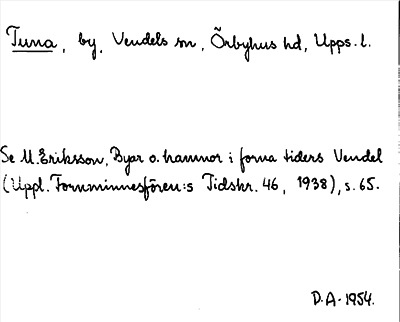 Tuna, by, Vendels sn, Örbyhus hd, Upps. l.
Se M. Eriksson, Byar o. hamnor i forna tiders Vendel
(Uppl. Fornminnesfören:s Tidskr. 46, 1938), s. 65.
D.A. 1954.